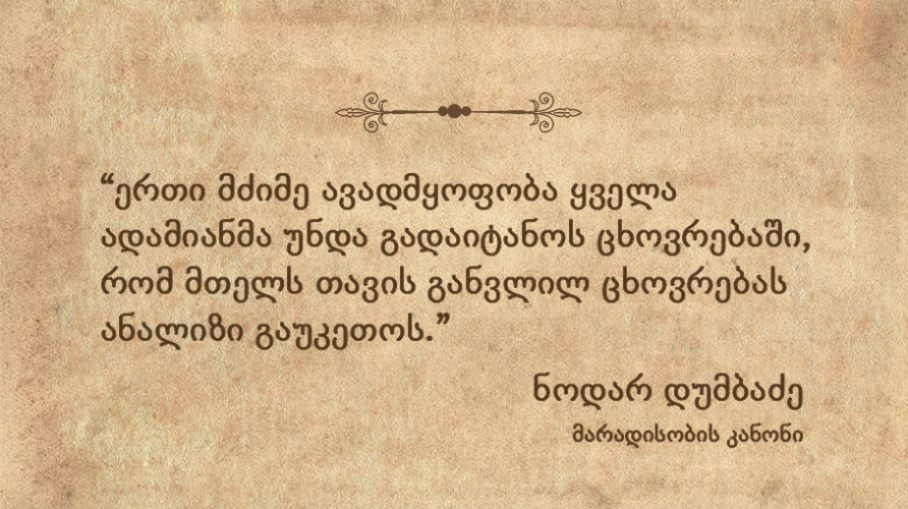 “ერთი მძიმე ავადმყოფობა ყველა
ადამიანმა უნდა გადაიტანოს ცხოვრებაში,
რომ მთელს თავის განვლილ ცხოვრებას
ანალიზი გაუკეთოს.”
ნოდარ დუმბაძე
მარადისობის კანონი